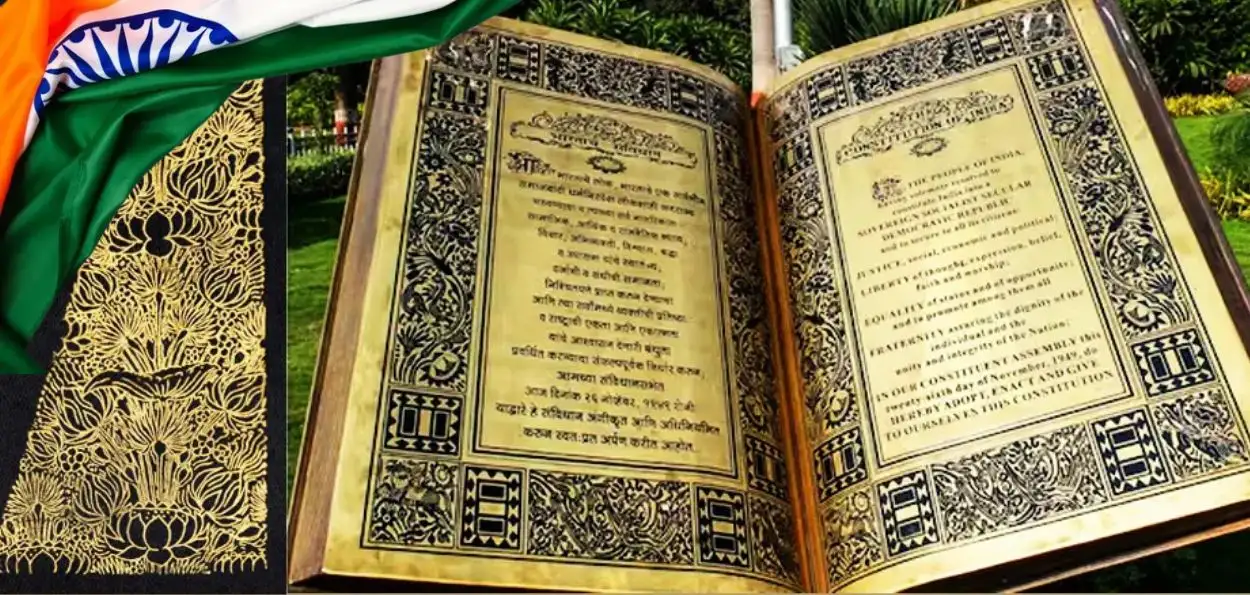 भारताचे संविधान
आम्ही भारताचे लोक, भारताचे एक सार्वभौम
समाजवादी धर्मनिरपेक्ष लोकशाही गणराज्य
घडवण्याचा व त्याच्या सर्व नागरिकांना
सामाजिक, आर्थिक व राजनैतिक न्याय,
विचार, अभिव्यक्ती, विश्वास, श्रद्धा
व उपासना यांचे स्वातंत्र्य,
दर्जाची व संधीची समानता,
निश्चितपणे प्राप्त करून देण्याचा
आणि त्या सर्वांमध्ये व्यक्तीची प्रतिष्ठा
व राष्ट्राची एकता आणि एकात्मता
यांचे आश्वासन देणारी बंधुता
प्रवर्धित करण्याचा संकल्पपूर्वक निर्धार करून,
आमच्या संविधानसभेत
आज दिनांक २६ नोव्हेंबर, १९४९ रोजी
याद्वारे हे संविधान अंगीकृत आणि अधिनियमित
करून स्वतःप्रत अर्पण करीत आहोत.
CONSTITUTION OF INDIA
THE PEOPLE OF INDIA,
having solemnly resolved to
constitute India into a
SOVEREIGN SOCIALIST SECULAR
DEMOCRATIC REPUBLIC
and to secure to all its citizens:
JUSTICE, social, economic and political;
LIBERTY of thought, expression, belief,
faith and worship;
EQUALITY of status and of opportunity;
and to promote among them all
FRATERNITY assuring the dignity of the
individual and the
unity and integrity of the Nation;
IN OUR CONSTITUENT ASSEMBLY this
twenty-sixth day of November, 1949, do
HEREBY ADOPT, ENACT AND GIVE
TO OURSELVES THIS CONSTITUTION